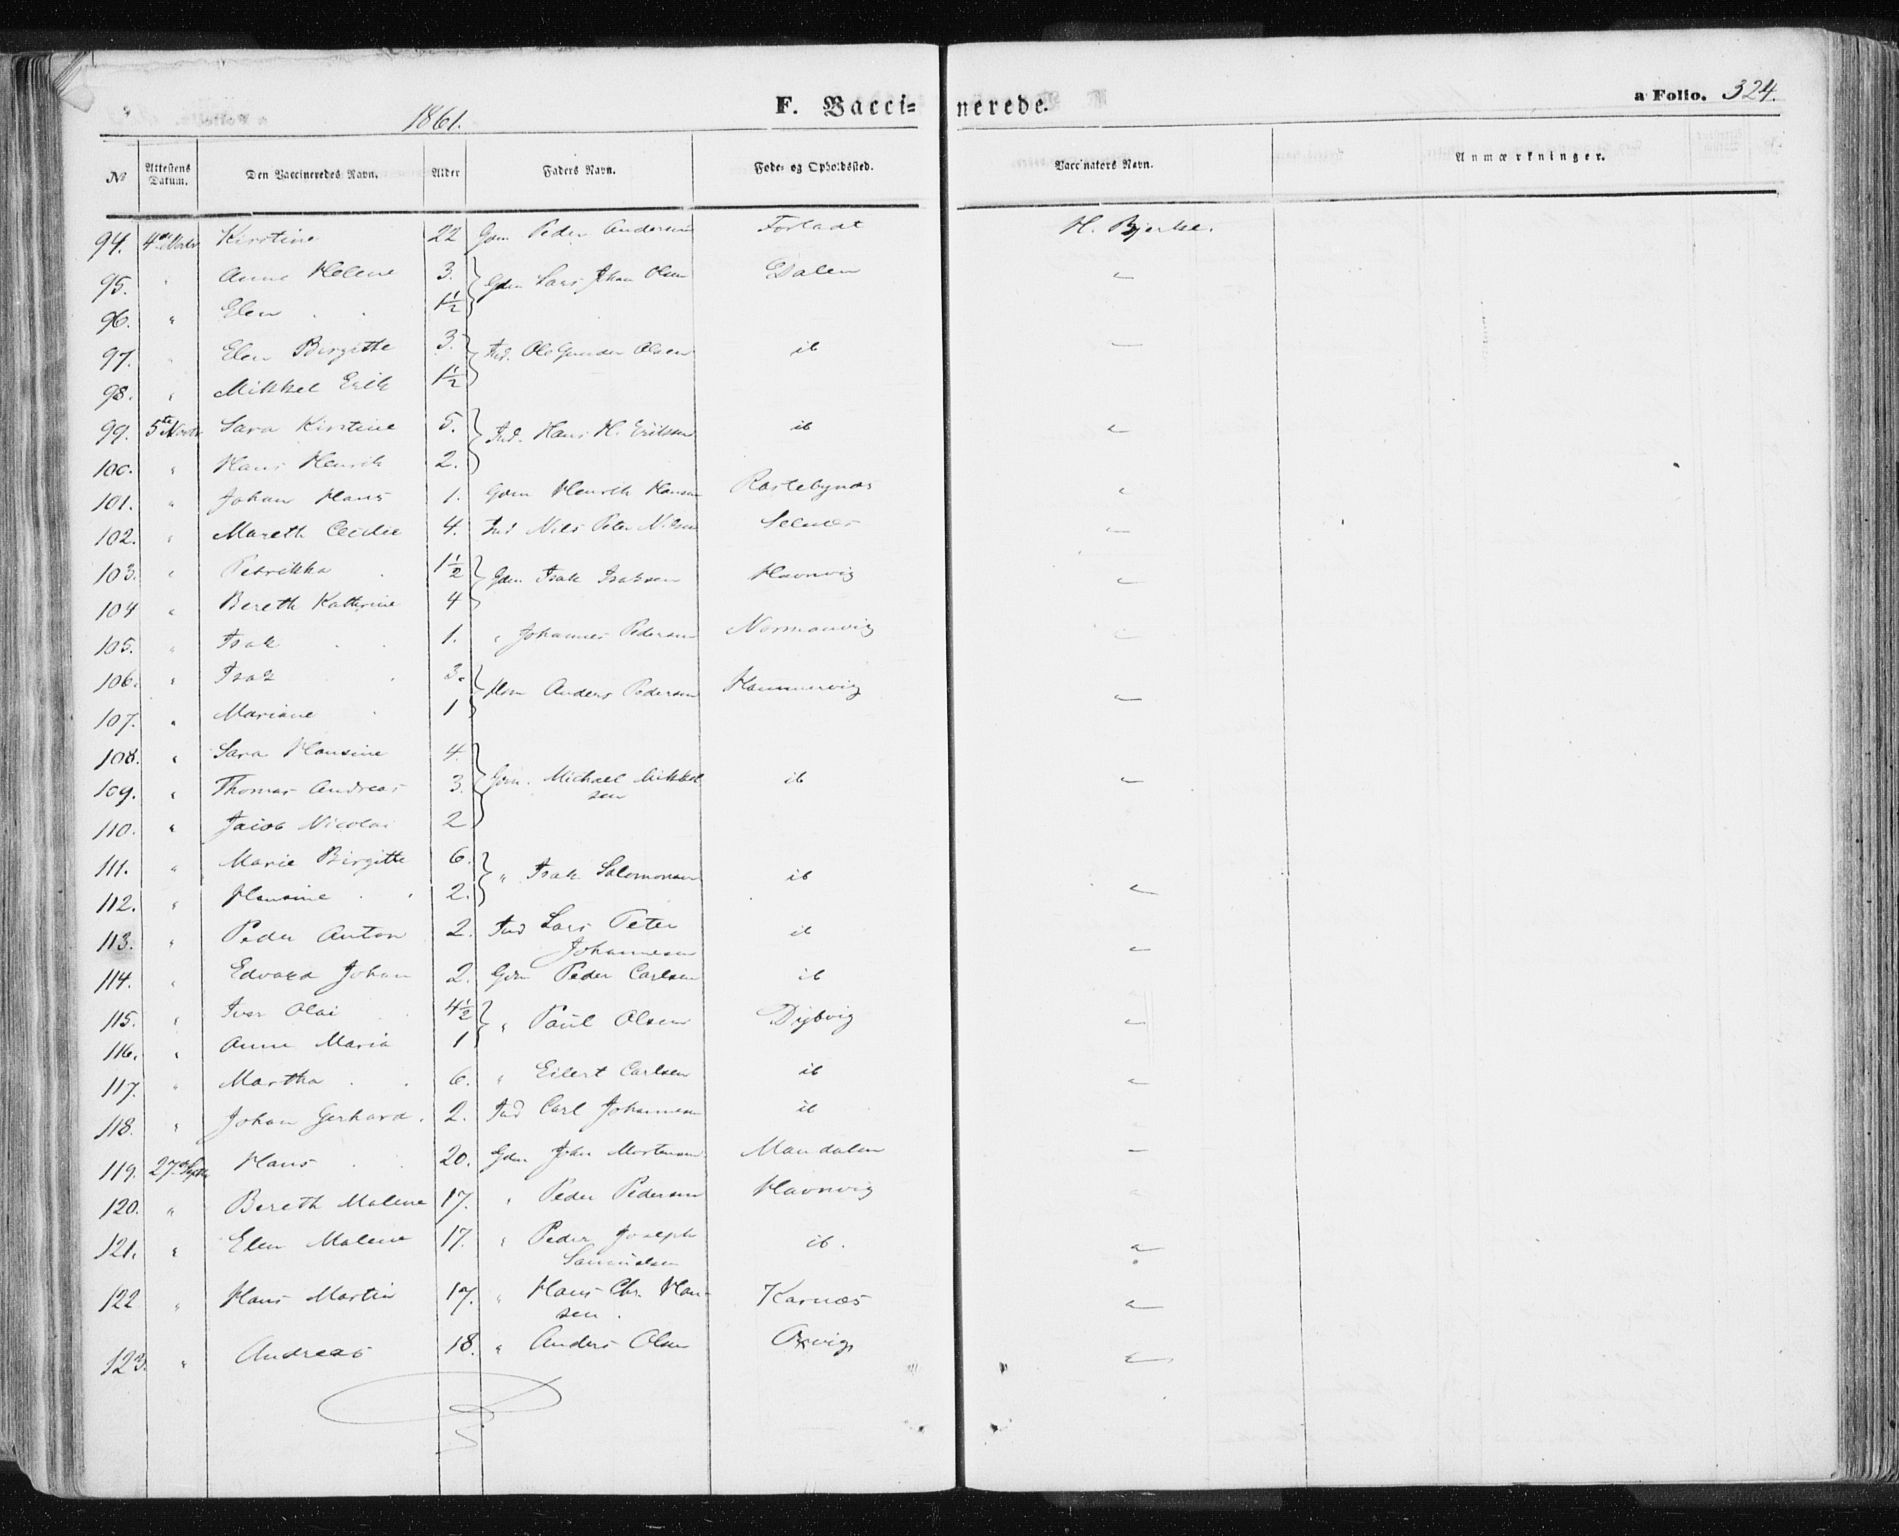 1861.
F. Vaccinerede.
a Folio. 324.
№ | Attestens Datum. | Den Vaccineredes Navn. | Alder | Faders Navn. | Føde- og Opholdssted. | Vaccinators Navn. | Anmærkninger.
94. Kirstine 22 Gdm Peder Andersen H. Bjerke.
95. " Anne Helene 3. Gdm Lars Johan Olsen Dalen "
96. " Elen 1½
97. " Elen Birgitte 3. Ind. Ole Gunder Olsen ib "
98. " Mikkel Erik 1½
99. 5te Sara Kirstine 5. Ind. Hans H. Eriksen ib "
100. " Hans Henrik 2.
101. " Johan Hans 1. Gdm Henrik Hansen "
102. " Mareth Cecilie 4. Ind Nils Peter Nilsen Selnes "
103. " Petrikka 1½ Gdm Isak Isaksen Havnvig "
104 " Bereth Kathrine 4
105. " Isak 1. " Johannes Pedersen Normanvig "
106. " Isak 3. Anders Pedersen Hammervig "
107. " Mariane 1
108. " Sara Hansine 4.
109. " Thomas Andreas 3. Gdm. Michael Mikkel
sen ib "
110. " Jacob Nicolai 2
111. " Marie Birgitte 6. " Isak Salomonsen ib "
112. " Hansine 2.
113. " Peder Anton 2. Ind Lars Peter
Johannesen ib "
114. " Edvard Johan 2. Gdm Peder Carlsen ib "
115. " Iver Olai 4½ " Paul Olsen Dybvig "
116. " Anne Maria 1
117. " Martha 6. " Eilert Carlsen ib "
118. " Johan Gerhard. 2. Ind Carl Johannesen ib "
119. 27. Septb Hans 20. Gdm Johan Mortensen Mandalen "
120. " Bereth Malene 17. " Peder Pedersen Havnvig "
121. " Elen Malene 17. " Peder Joseph
Samuelsen ib. "
122 " Hans Martin 17. " Hans Chr. Han-
sen. Karnæs "
123. " Andreas 18. " Anders Olsen "